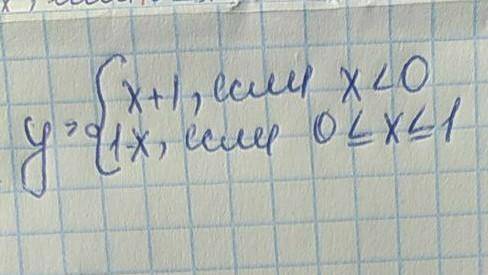 y = { x+1, если x < 0
1-x, если 0 ≤ x ≤ 1